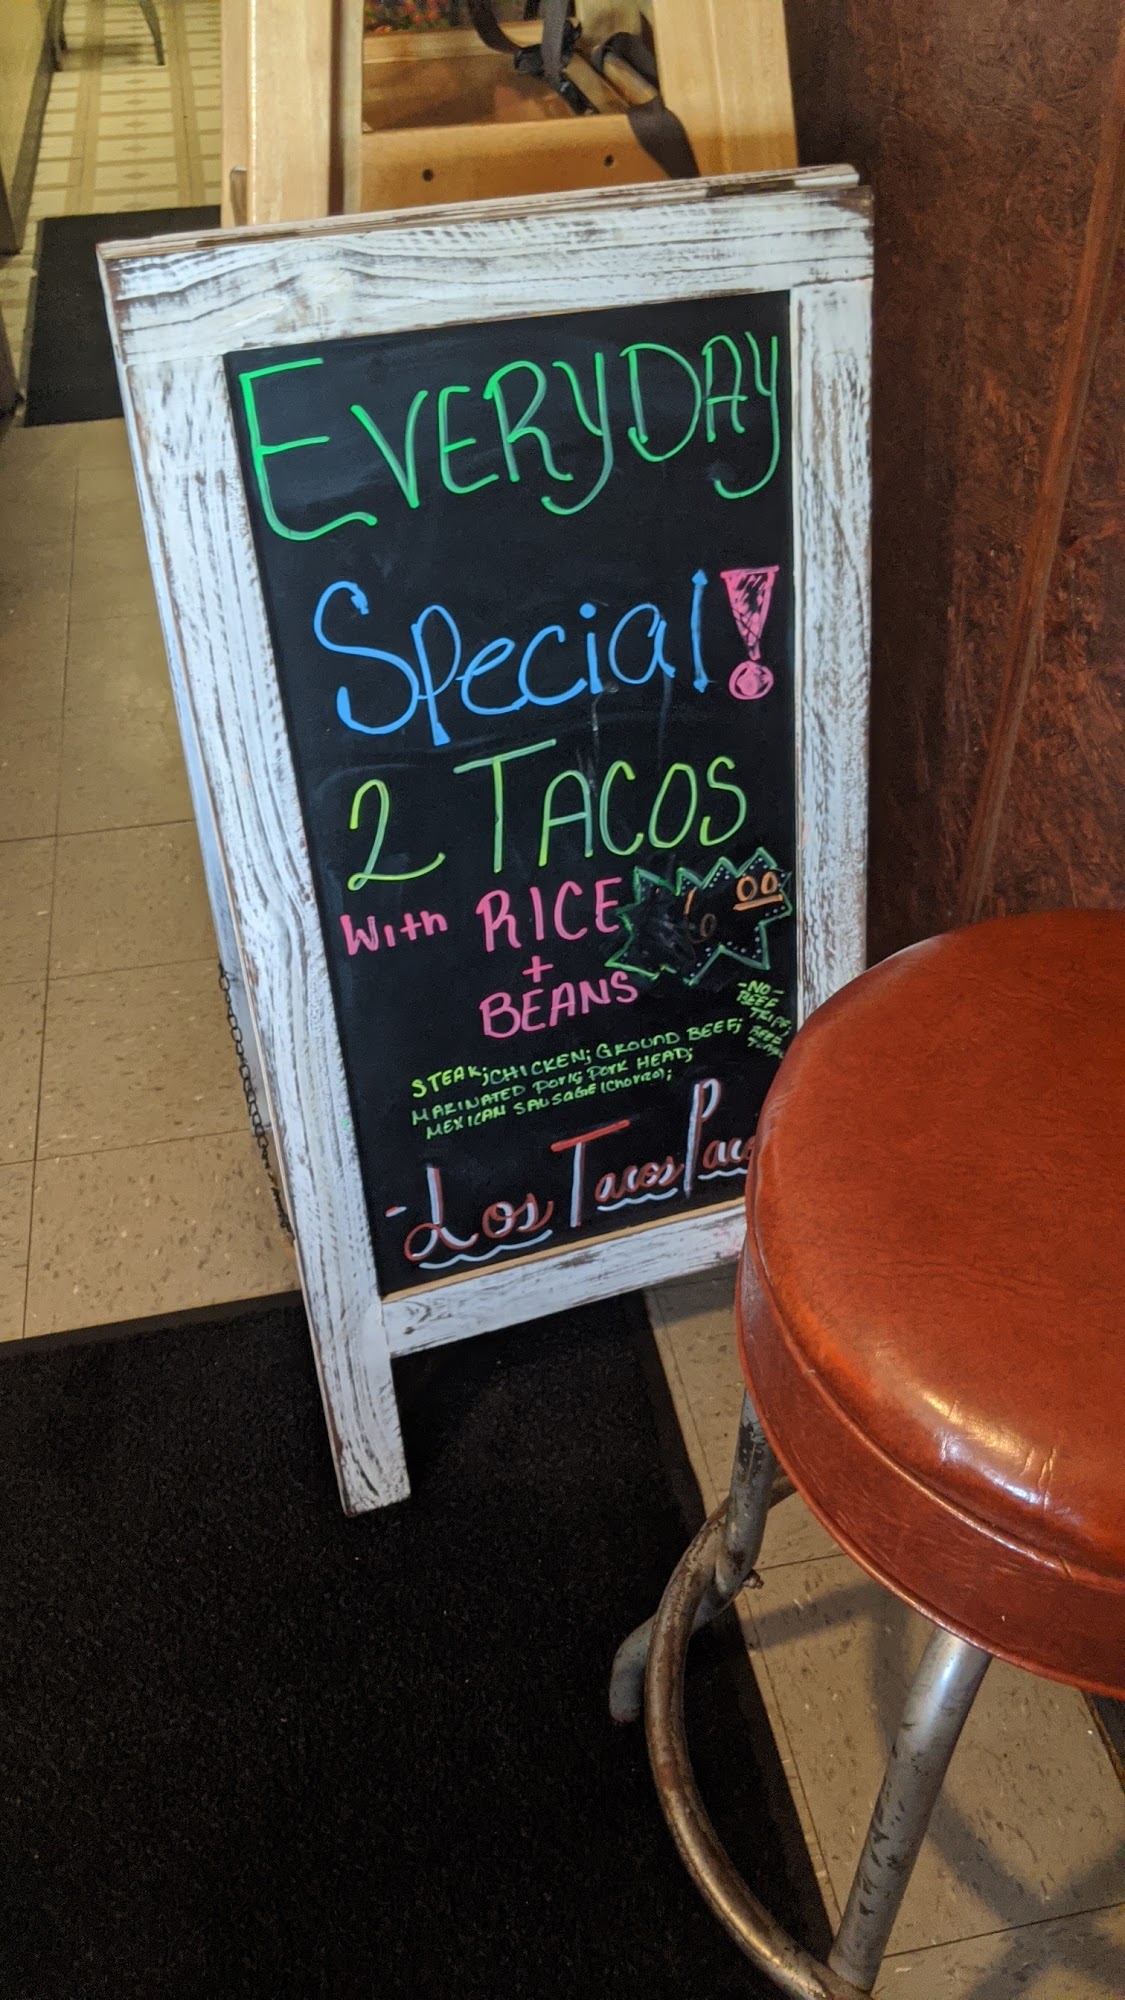 EVERYDAY
Special!
2 TACOS
With RICE
+
BEANS
00
-NO-
BEEF
TRIPE;
BEEF
STEAK; CHICKEN; GROUND BEEF;
MARINATED PORK; PORK HEAD;
MEXICAN SAUSAGE (CHORIZO);
-Los Tacos